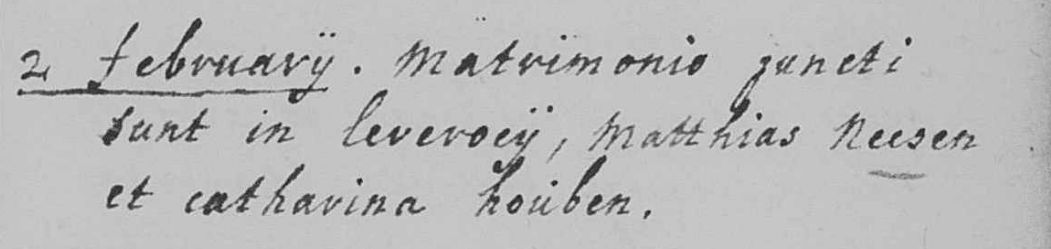 2 februarÿ. Matrimonio juncti
sunt in leveroeÿ, Matthias Neesen
et catharina houben.